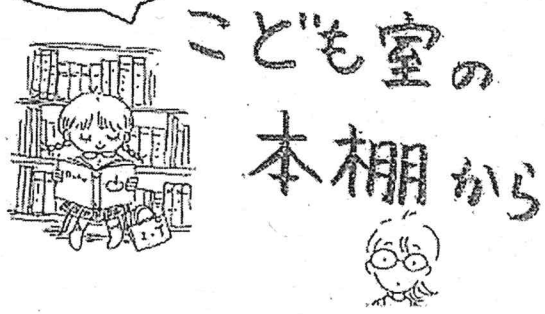 こども室の
本棚から
I.T